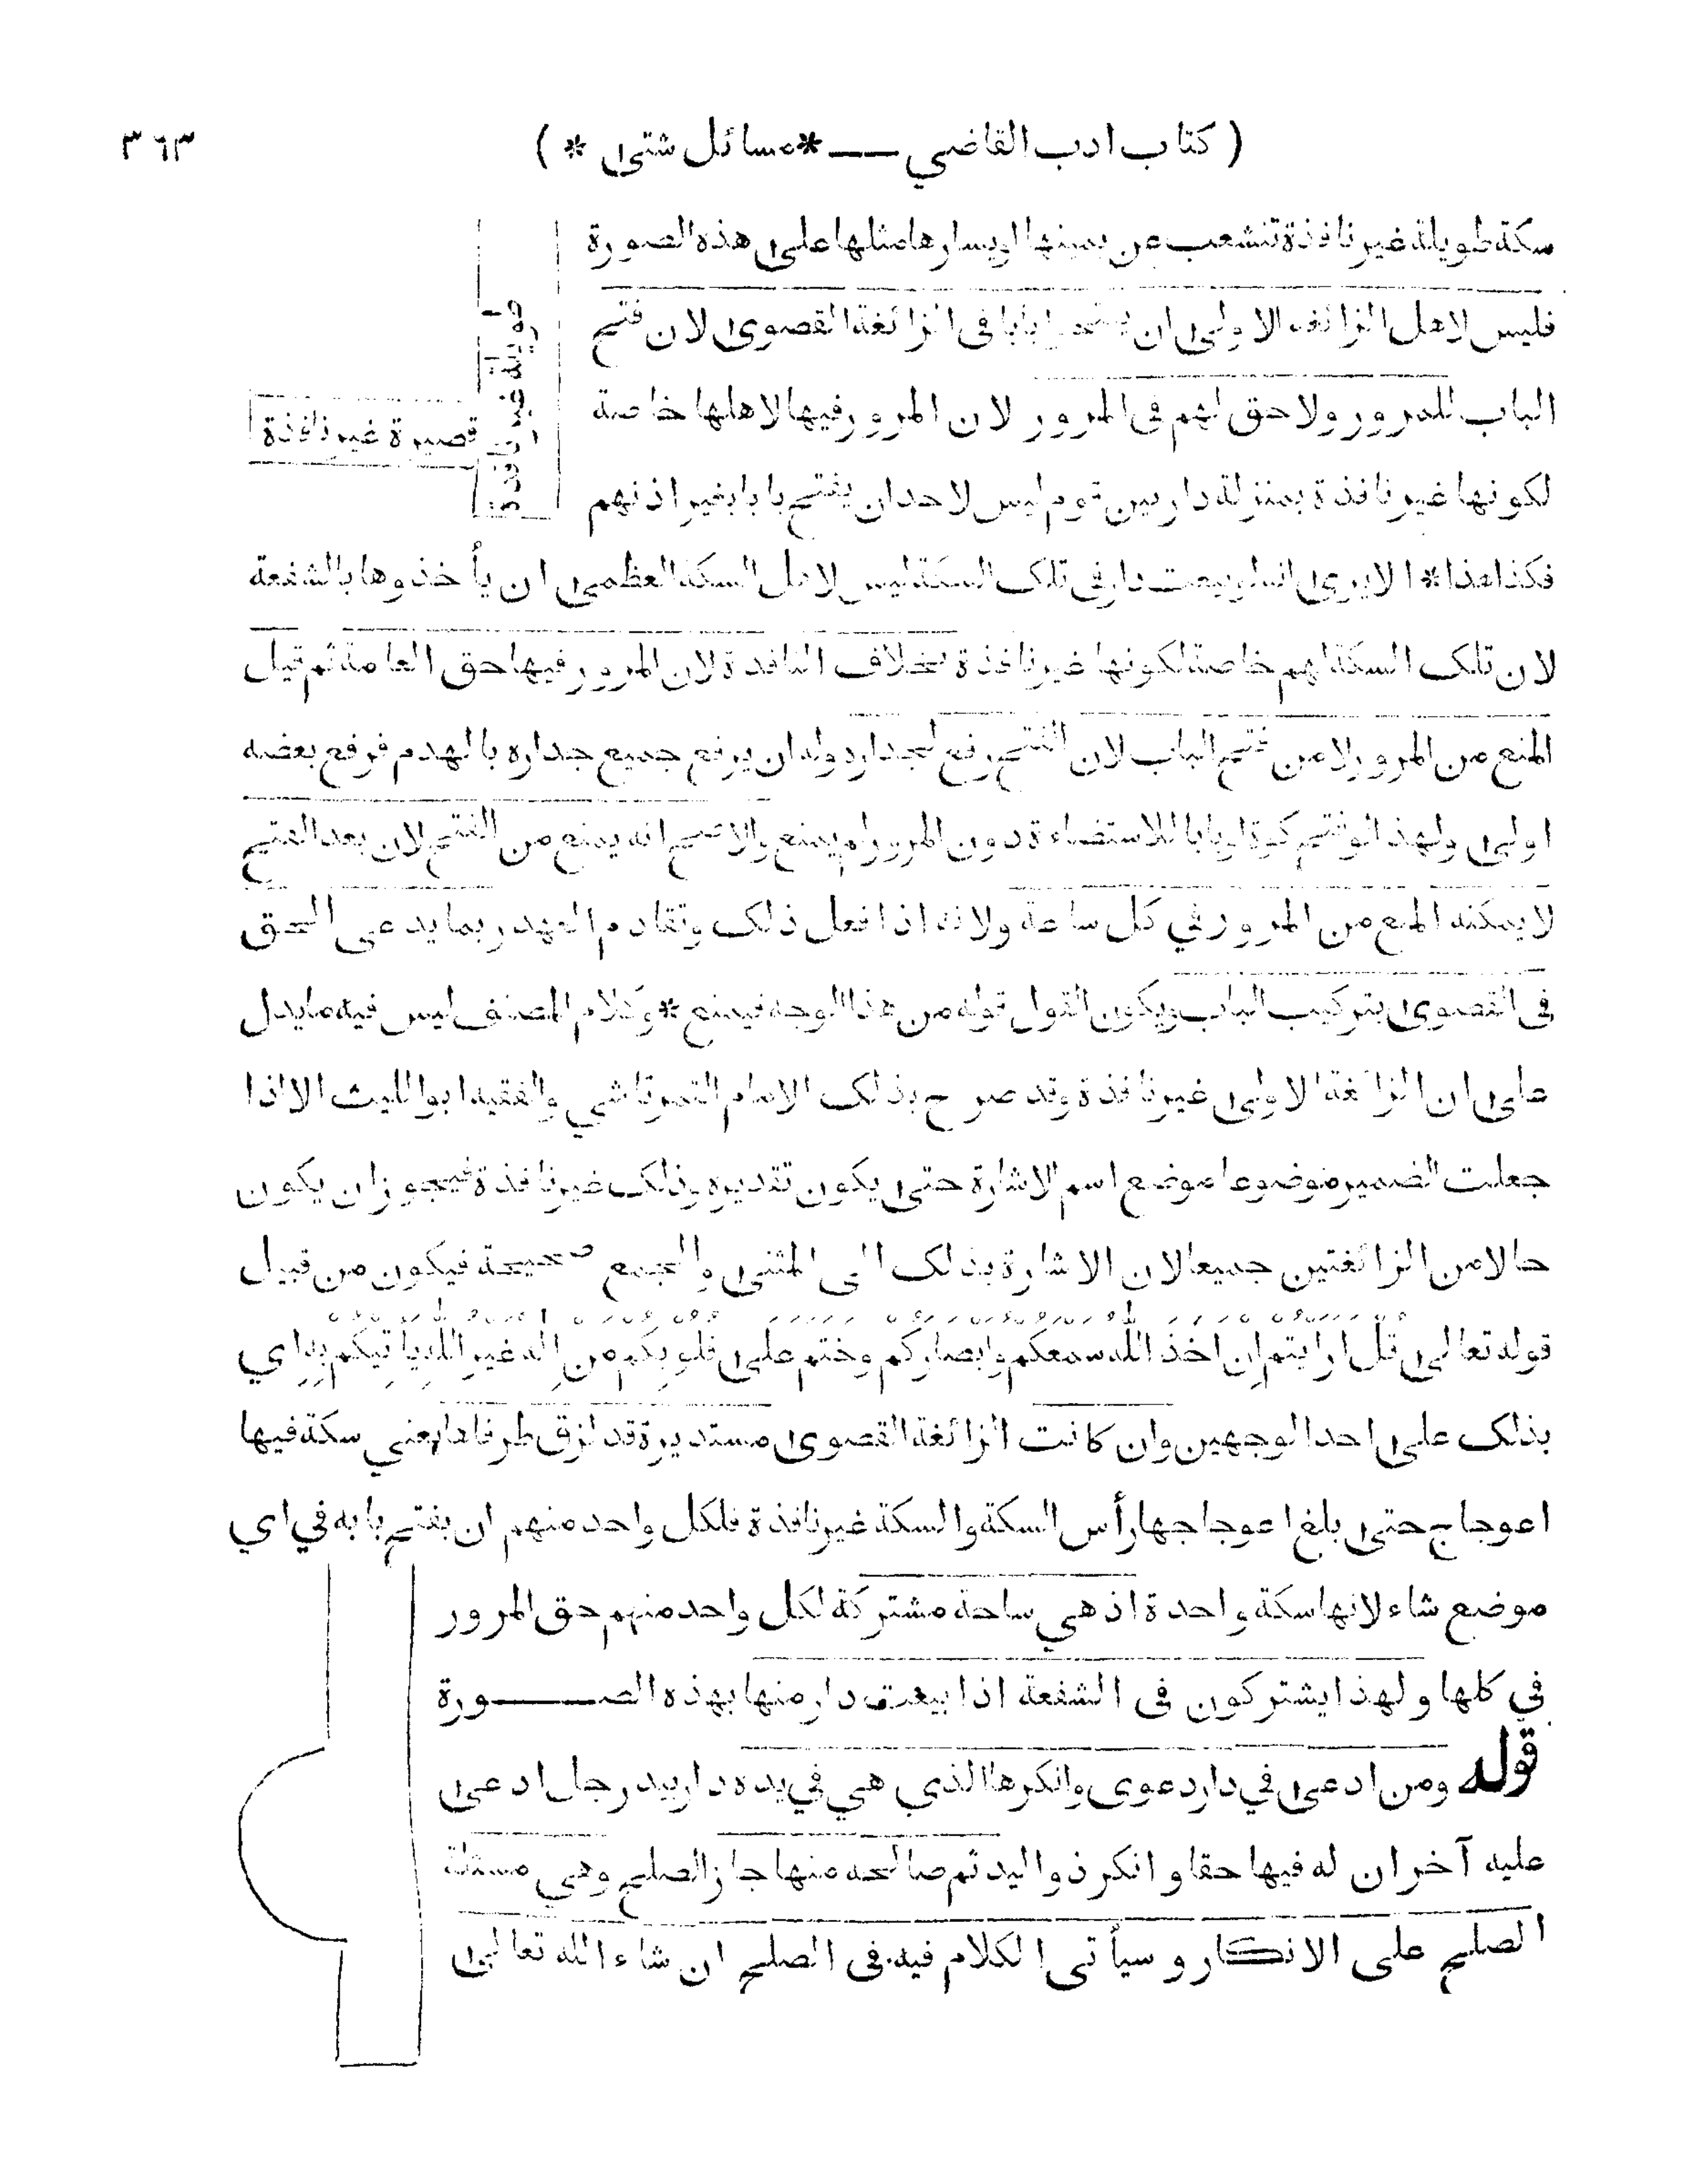 ( كتاب ادب القاضي — * مسائل شتى * )
٣٦٣
سكة طويلة غير نافذة تنشعب عن يمينها او يسارها مثلها على هذه الصورة
فليس لاهل الزائغة الاولى ان يفتحوا بابا في الزائغة القصوى لان فتح
الباب للمرور ولا حق لهم في المرور لان المرور فيها لاهلها خاصة
لكونها غير نافذة بمنزلة دار بين قوم ليس لاحد ان يفتح بابا بغير اذنهم
طويلة غير نافذة
قصيرة غير نافذة
فكذا هذا * الا يرى انه لو بيعت دار في تلك السكة ليس لاهل السكة العظمى ان يأخذوها بالشفعة
لان تلك السكة لهم خاصة لكونها غير نافذة بخلاف النافذة لان المرور فيها حق العامة ثم قيل
المنع من المرور لا من فتح الباب لان الفتح رفع لجداره وله ان يرفع جميع جداره بالهدم فرفع بعضه
اولى ولهذا لو فتح كوة او بابا للاستضاءة دون المرور لم يمنع والاصح انه يمنع من الفتح لان بعد الفتح
لا يمكنه المنع من المرور في كل ساعة ولانه اذا فعل ذلك وتقادم العهد ربما يدعى الحق
في القصوى بتركيب الباب ويكون القول قوله من هذا الوجه فيمنع * وكلام المصنف ليس فيه ما يدل
على ان الزائغة الاولى غير نافذة وقد صرح بذلك الامام التمرتاشي والفقيه ابو الليث الا اذا
جعلت الضمير موضوعا موضع اسم الاشارة حتى يكون تقديره وذلك غير نافذة فيجوز ان يكون
حالا من الزائغتين جميعا لان الاشارة بذلك الى المثنى والجمع صحيحة فيكون من قبيل
قوله تعالى قُلْ ارايتم اِن اَخَذَ اللّٰه سمعكم وابصاركم وختم على قلوبكم من اِله غير الله ياتيكم به اي
بذلك على احد الوجهين وان كانت الزائغة القصوى مستديرة قد لزق طرفاها يعني سكة فيها
اعوجاج حتى بلغ اعوجاجها رأس السكة والسكة غير نافذة فلكل واحد منهم ان يفتح بابه في اي
موضع شاء لانها سكة واحدة اذ هي ساحة مشتركة لكل واحد منهم حق المرور
في كلها ولهذا يشتركون في الشفعة اذا بيعت دار منها بهذه الصورة
قوله ومن ادعى في دار دعوى وانكرها الذي هي في يده دار بيد رجل ادعى
عليه آخر ان له فيها حقا وانكر ذو اليد ثم صالحه منها جاز الصلح وهي مسئلة
الصلح على الانكار وسيأتى الكلام فيه في الصلح ان شاء الله تعالى